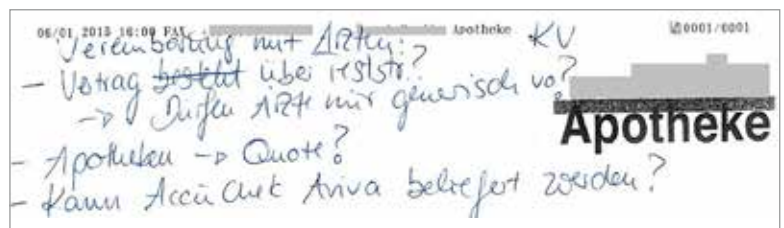 06/01 2015 16:00 FAX Apotheke 0001/0001
Vereinbarung mit Ärzten: KV
- Vetrag besteht über Teststr.?
-> Dürfen Ärzte nur generisch vo?
Apotheke
- Apotheken -> Quote?
- Kann Accu Chek Aviva beliefert werden?